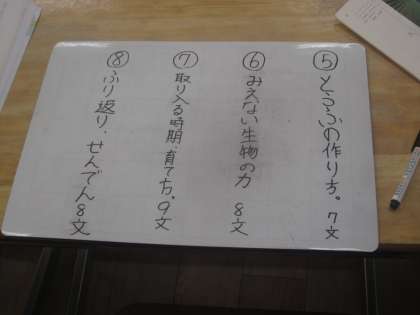 ⑤とうふの作り方。7文
⑥みえない生物の力 8文
⑦取り入る時期・育て方。9文
⑧ふり返り、せんでん8文